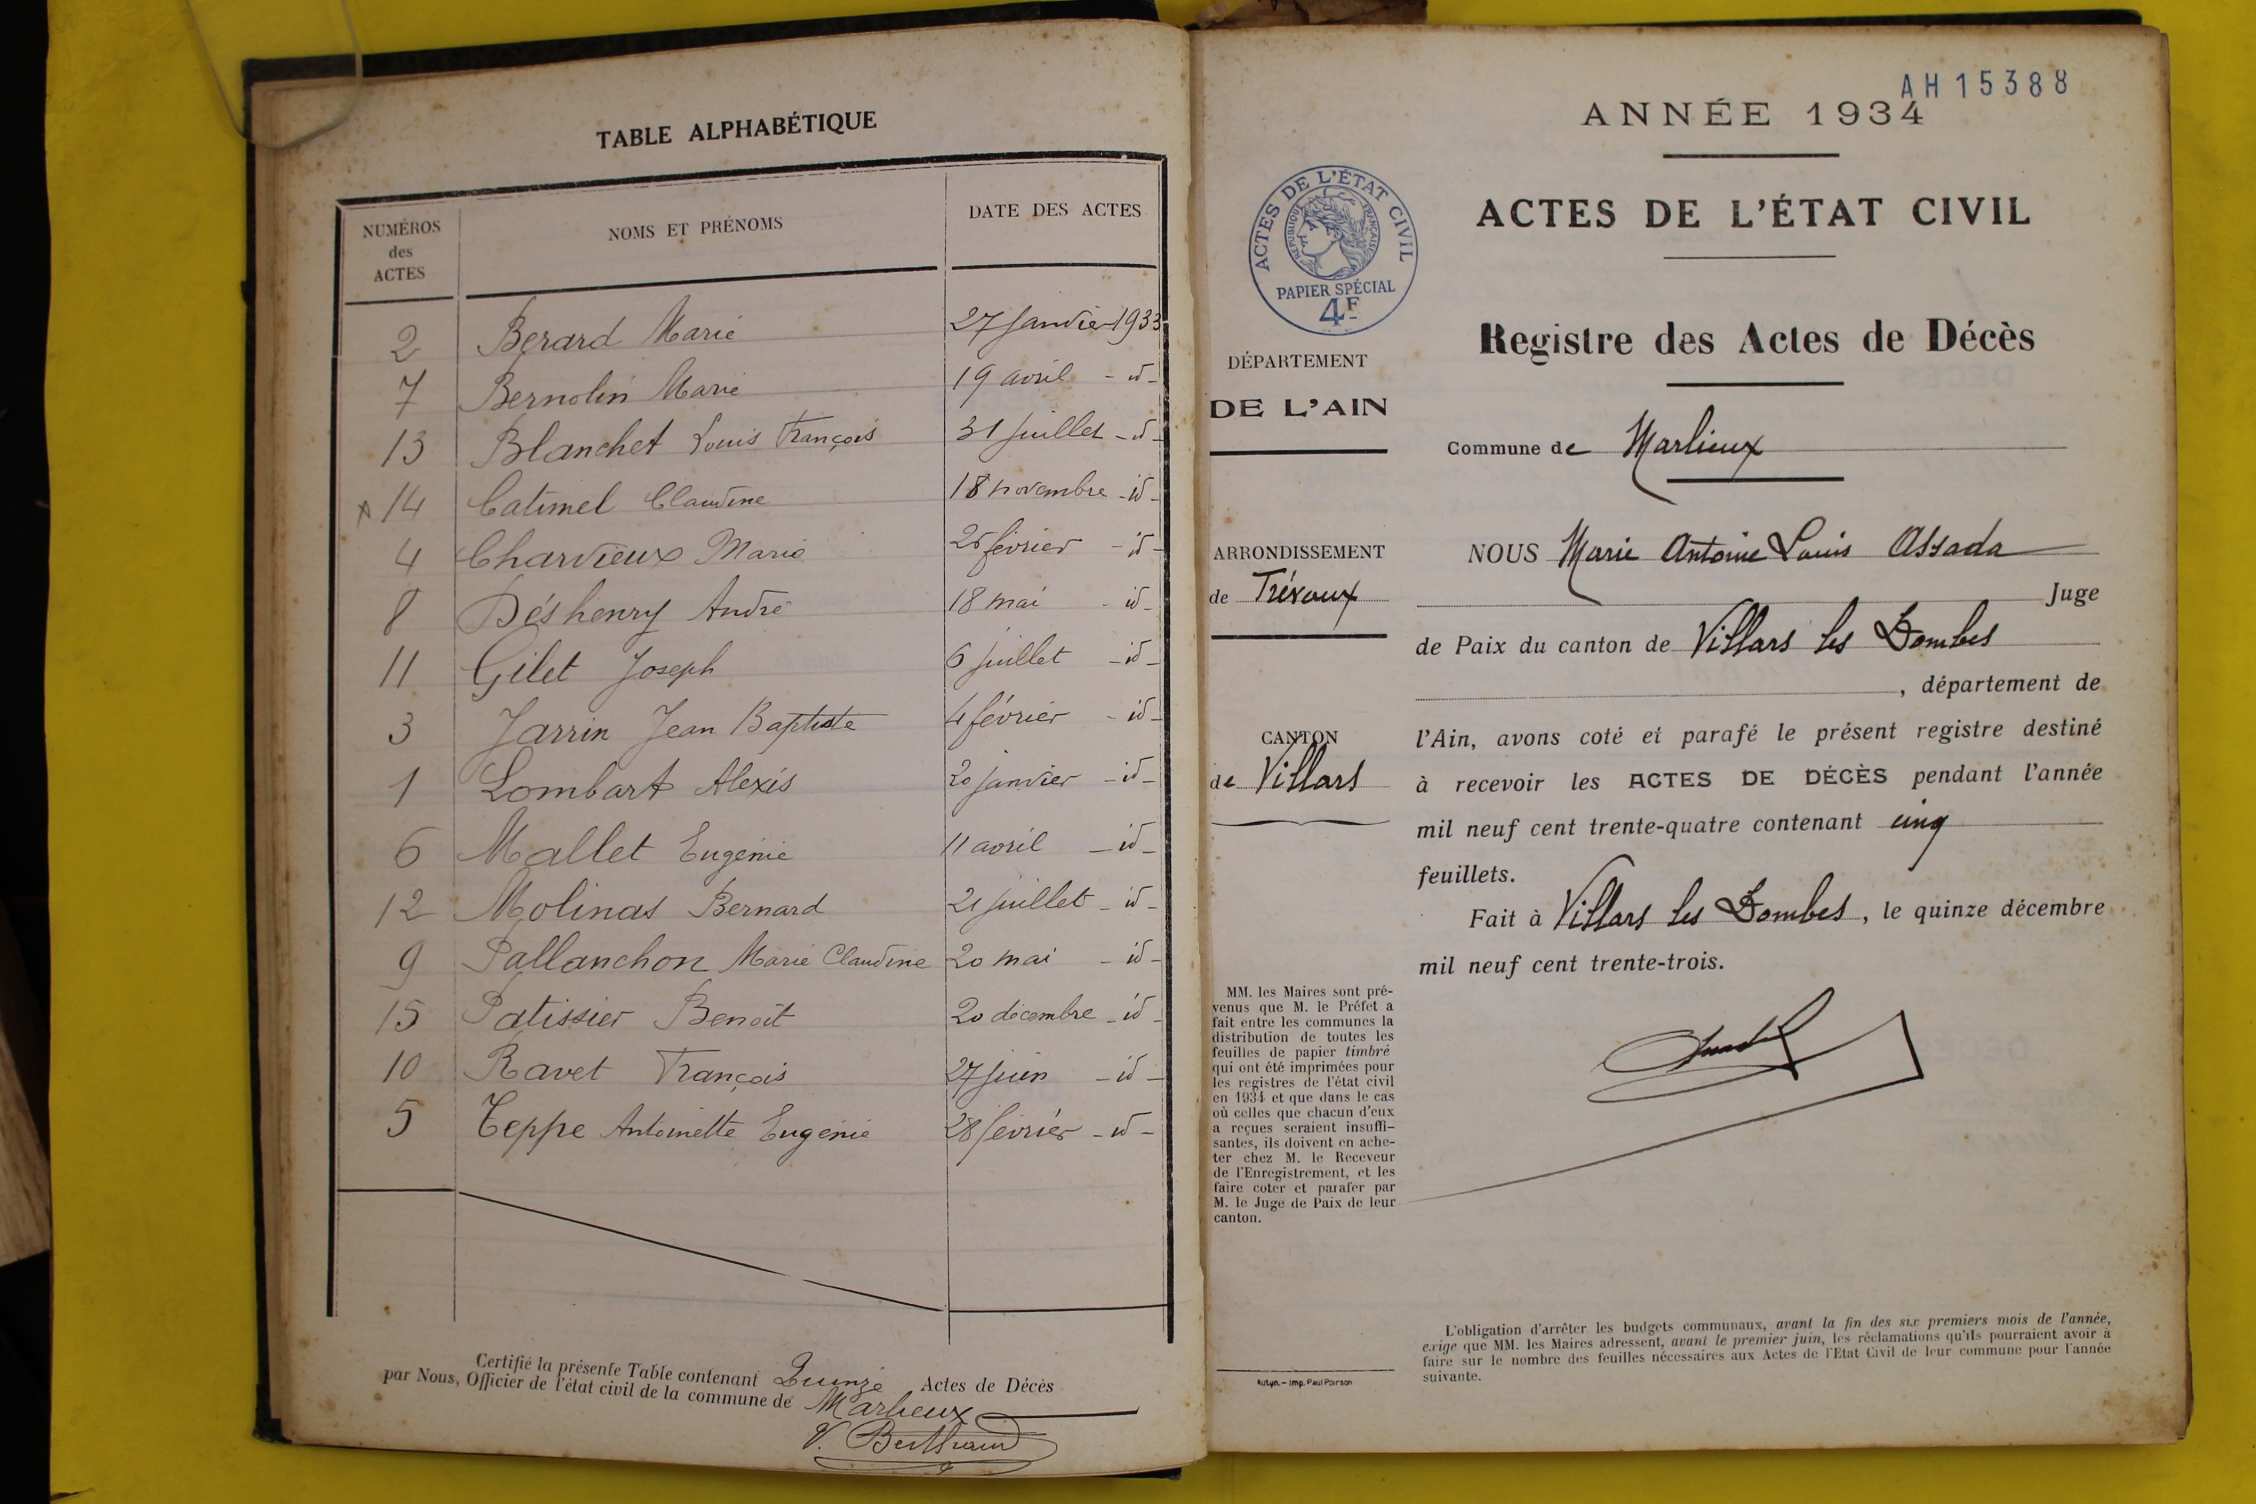 TABLE ALPHABÉTIQUE
NUMÉROS des ACTES NOMS ET PRÉNOMS DATE DES ACTES
2 Berard Marie 27 Janvier 1933
7 Bernolin Marie 19 avril - id -
13 Blanchet Louis François 31 Juillet - id -
14 Catimel Claudine 18 novembre - id -
4 Charvieux Marie 25 février - id -
8 Déshenry André 18 mai - id -
11 Gilet Joseph 6 Juillet - id -
3 Jarrin Jean Baptiste 4 février - id -
1 Lombart Alexis 20 janvier - id -
6 Mallet Eugénie 11 avril - id -
12 Molinas Bernard 21 juillet - id -
9 Pallanchon Marie Claudine 20 mai - id -
15 Patissier Benoît 20 décembre - id -
10 Ravet François 27 juin - id -
5 Teppe Antoinette Eugénie 28 février - id -
Certifié la présente Table contenant Quinze Actes de Décès
par Nous, Officier de l'état civil de la commune de Marlieux
V. Berthraud
AH15388
ANNÉE 1934
ACTES DE L'ÉTAT CIVIL
RÉPUBLIQUE FRANÇAISE
PAPIER SPÉCIAL
4F
ACTES DE L'ÉTAT CIVIL
Registre des Actes de Décès
DÉPARTEMENT
DE L'AIN
Commune de Marlieux
ARRONDISSEMENT
de Trévoux
CANTON
de Villars
NOUS Marie Antoine Louis Assada
Juge
de Paix du canton de Villars les Dombes
, département de
l'Ain, avons coté et parafé le présent registre destiné
à recevoir les ACTES DE DÉCÈS pendant l'année
mil neuf cent trente-quatre contenant cinq
feuillets.
Fait à Villars les Dombes, le quinze décembre
mil neuf cent trente-trois.
MM. les Maires sont pré-
venus que M. le Préfet a
fait entre les communes la
distribution de toutes les
feuilles de papier timbré
qui ont été imprimées pour
les registres de l'état civil
en 1934 et que dans le cas
où celles que chacun d'eux
a reçues seraient insuffi-
santes, ils doivent en ache-
ter chez M. le Receveur
de l'Enregistrement, et les
faire coter et parafer par
M. le Juge de Paix de leur
canton.
L'obligation d'arrêter les budgets communaux, avant la fin des six premiers mois de l'année,
exige que MM. les Maires adressent, avant le premier juin, les réclamations qu'ils pourraient avoir à
faire sur le nombre des feuilles nécessaires aux Actes de l'État Civil de leur commune pour l'année
suivante.
Imp. Paul Poirson